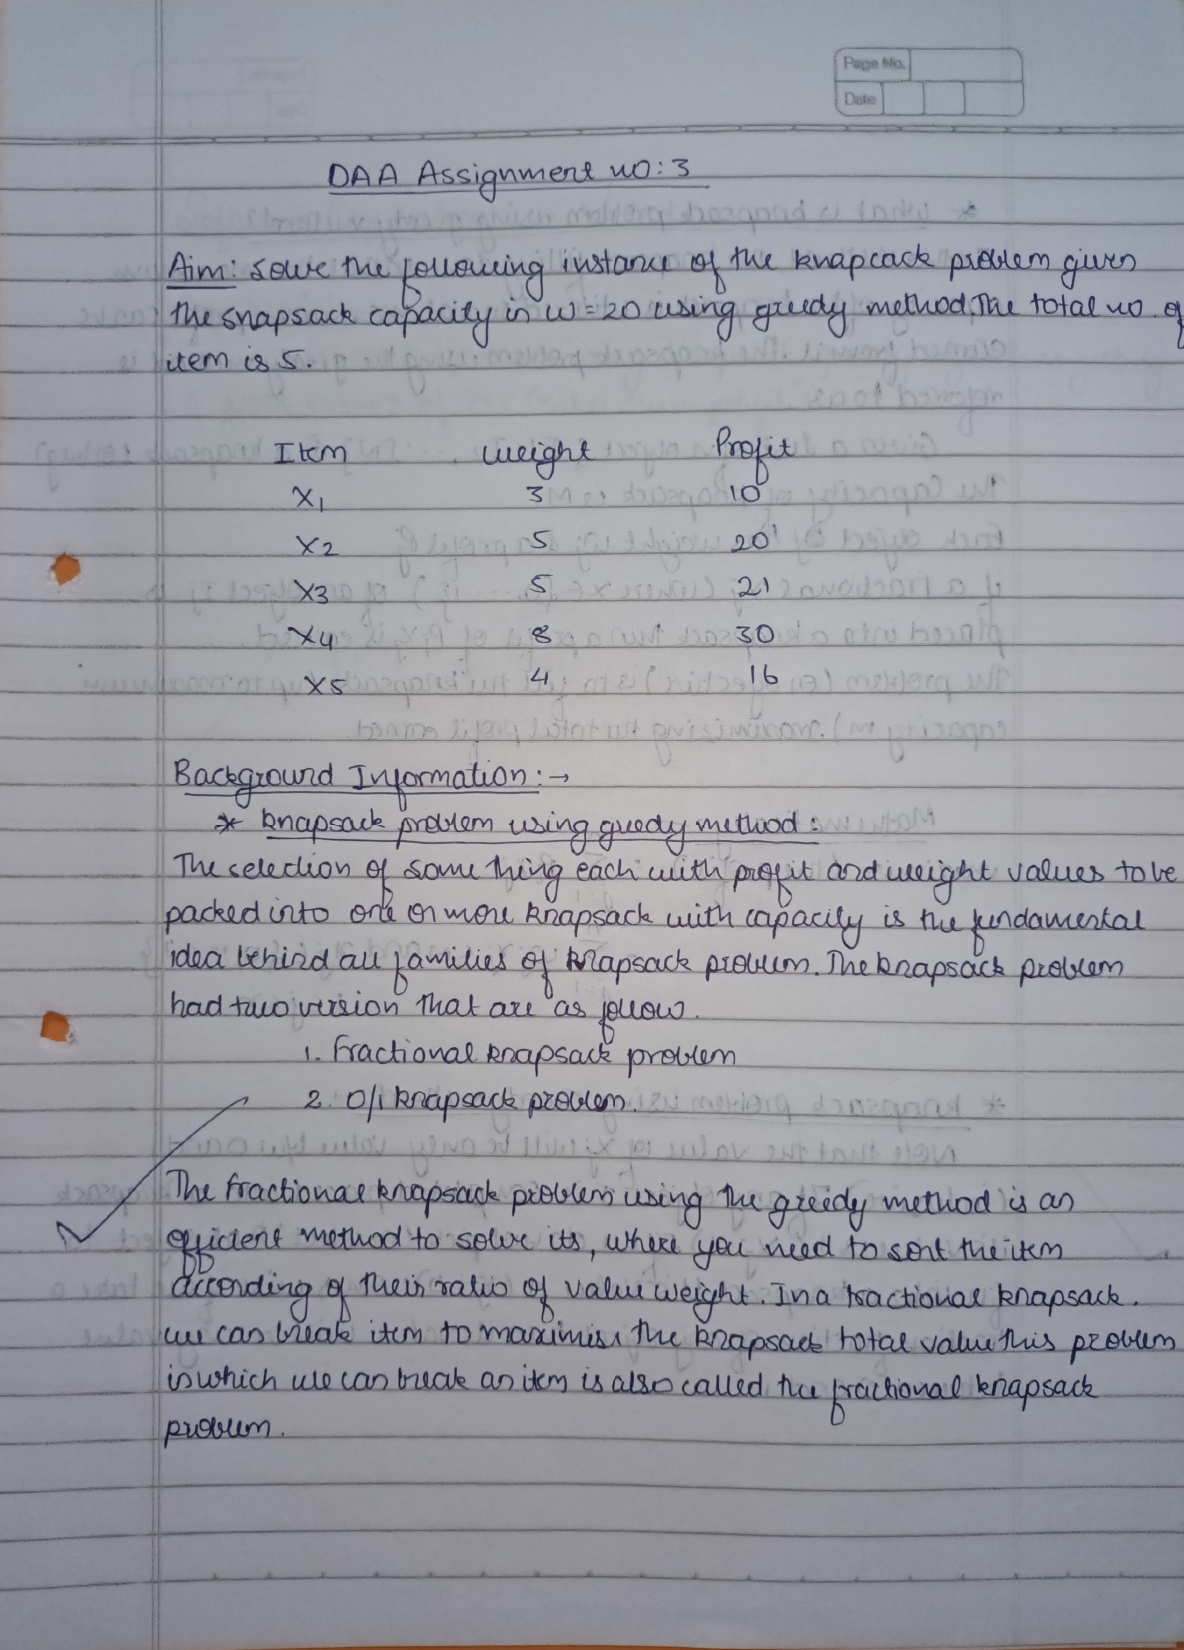 Page No.
Date
DAA Assignment no: 3
Aim: Solve the following instance of the knapcack problem given
the snapsack capacity in w=20 using greedy method. The total no. of
item is 5.
Item Weight Profit
X1 3 10
X2 5 20
X3 5 21
X4 8 30
X5 4 16
Background Information:→
* knapsack problem using greedy method:
The selection of some thing each with profit and weight values to be
packed into one or more knapsack with capacity is the fundamental
idea behind all families of knapsack problem. The knapsack problem
had two version that are as follow.
1. Fractional knapsack problem
2. 0/1 knapsack problem.
The fractional knapsack problem using the greedy method is an
efficient method to solve its, where you need to sort the item
according of their ratio of value weight. In a fractional knapsack.
we can break item to maximise the knapsack total value this problem
in which we can break an item is also called the fractional knapsack
problem.